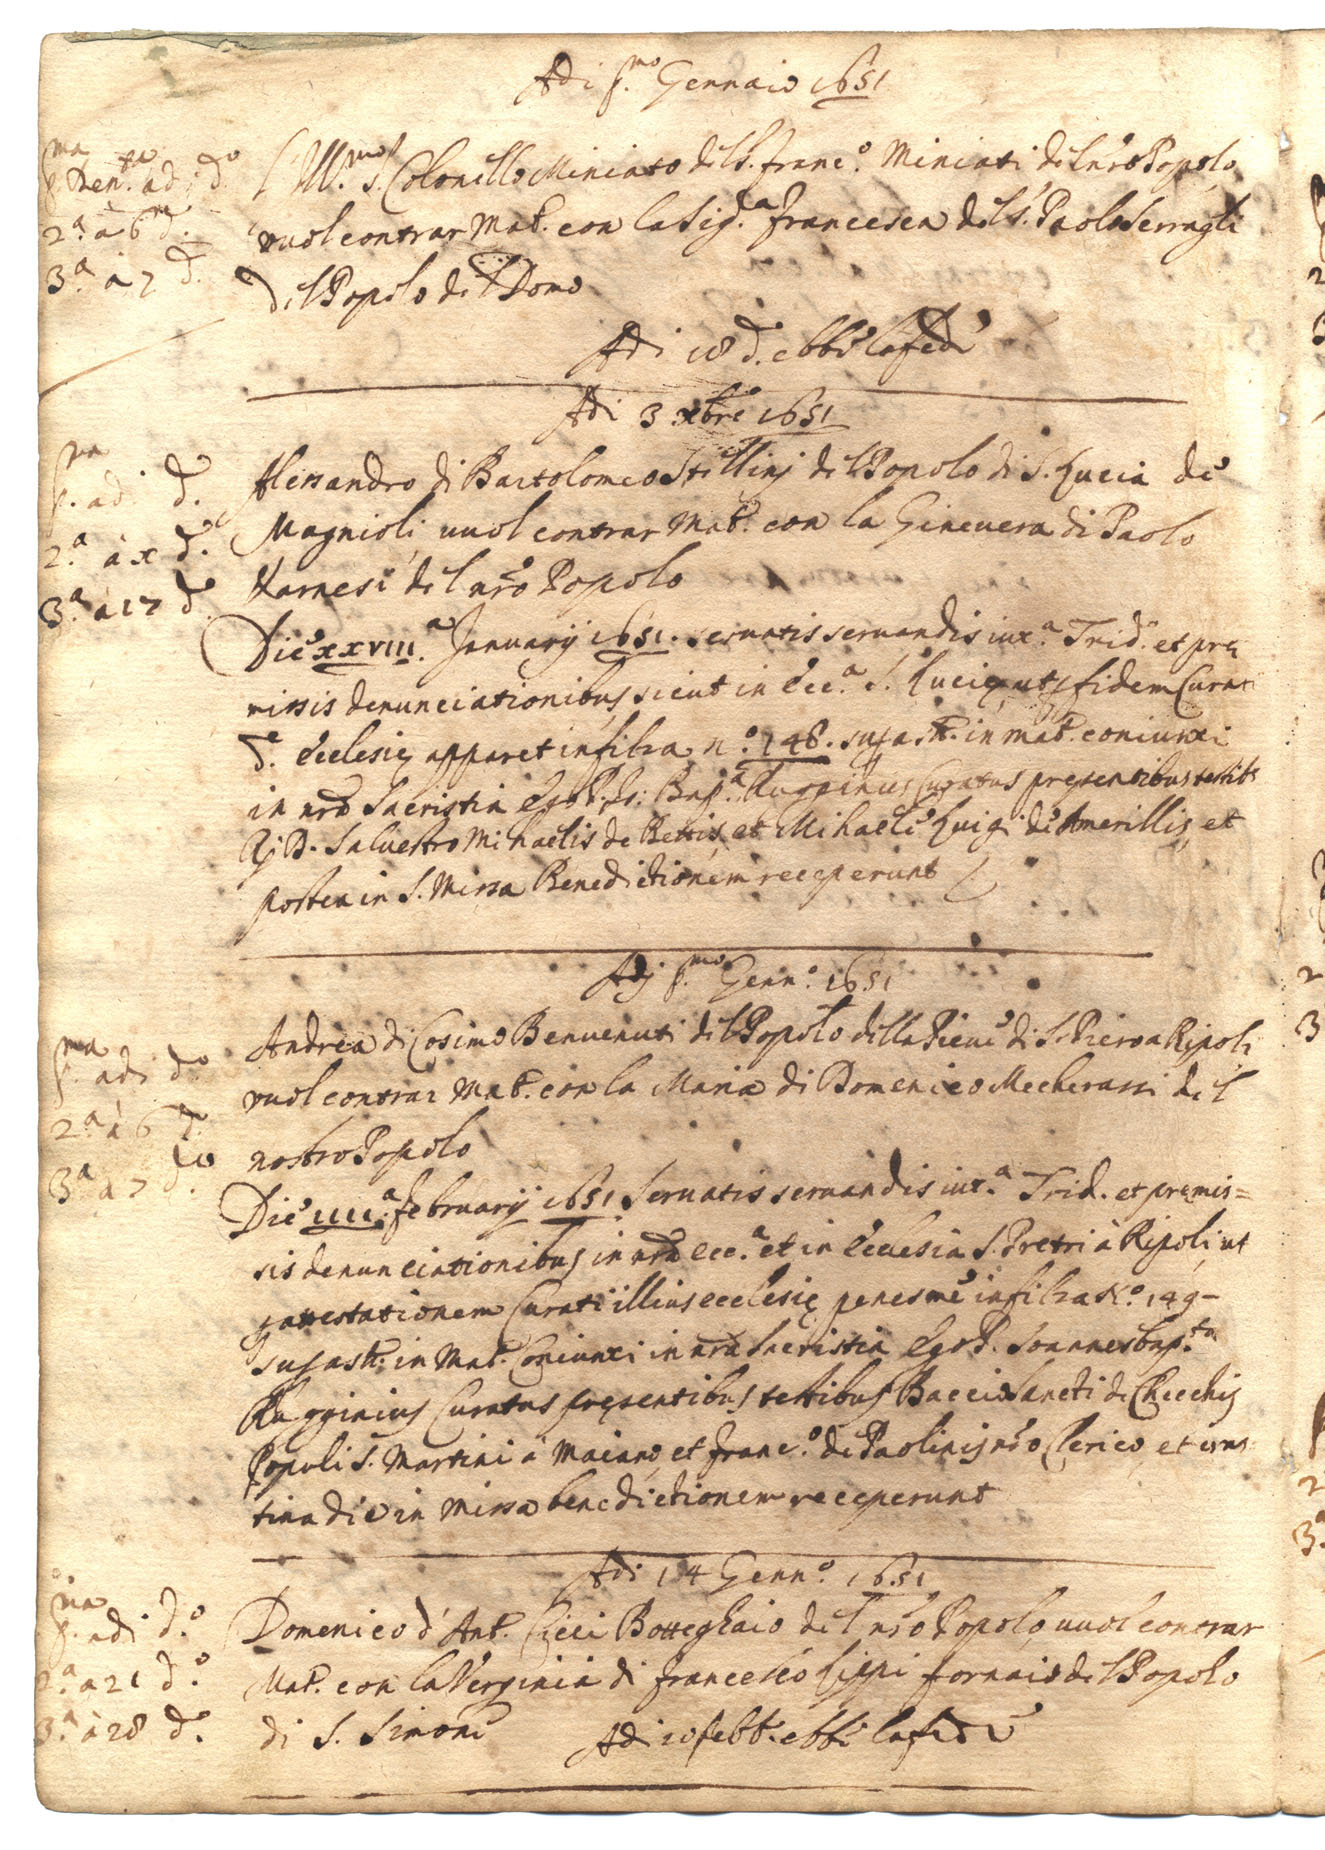 Adi p.mo Gennaio 1651
p.ma Den.ta ad i d.o
2.a à 6 d.o
3.a à 7 d.
L'Ill.mo S. Colonello Miniato del S. Franc.o Miniati del nro Popolo
vuol contrar Mat. con la Sig.a Francesca del S. Paolo Serragli
del Popolo del Domo
Adi 18 d. ebbe la fede
Adi 3 xbre 1651
p.ma adi d.o
2.a à x d.o
3.a à 17 d.o
Alessandro di Bartolomeo Stellinj del Popolo di S. Lucia de
Magnioli vuol contrar Mat. con la Gineuera di Paolo
Harnesi del nro Popolo
Die XXVIII.a Januarij 1651. seruatis seruandis iux.a Trid. et pre
missis denunciationibus sicut in Ecc.a S. Lucię ut p fidem Curati
d.e Ecclesię apparet in filza n.o 148. supast. in mat. coniunxi
in nra Sacristia Ego P. Jo: Bap.a Ruggинius Curatus pręsentibus testibs
R. D. Saluestro Michaelis de Bettis et Mihaele Luigi de Amerillis et
postea in S. Missa Benedictionem receperunt
Adj p.mo Genn.o 1651
p.ma adi d.o
2.a à 6 d.o
3.a a 7 d.o
Andrea di Cosimo Benvenuti del Popolo della Pieue di S. Piero a Ripoli
vuol contrar Mat. con la Maria di Domenico Mecherassi del
nostro Popolo
Die IIII.a February 1651 Seruatis seruandis iux.a Trid. et premis=
sis denunciationibus in nra ecc.a et in Ecclesia S. Pretri à Ripoli, ut
p attestationem Curati illius ecclesię penes me in filza N.o 149-
supast. in Mat. Coniunxi in nra Sacristia Ego P. Joannesbap.ta
Rugginius Curatus pręsentibus testibus Baccio Sancti de Checchis
Populi S. Martini à Maiano et Franc.o de Paolinis nro Clerico et cras
tina die in Missa benedictionem receperunt
Adi 14 Genn.o 1651
p.ma adi d.o
2.a a 21 d.o
3.a à 28 d.o
Domenico d'Ant. Cicci Botteghaio del nro Popolo, vuol contrar
Mat. con la Verginia di Francesco Lippi fornaio del Popolo
di S. Simone
Adi 10 febb. ebbe la fede